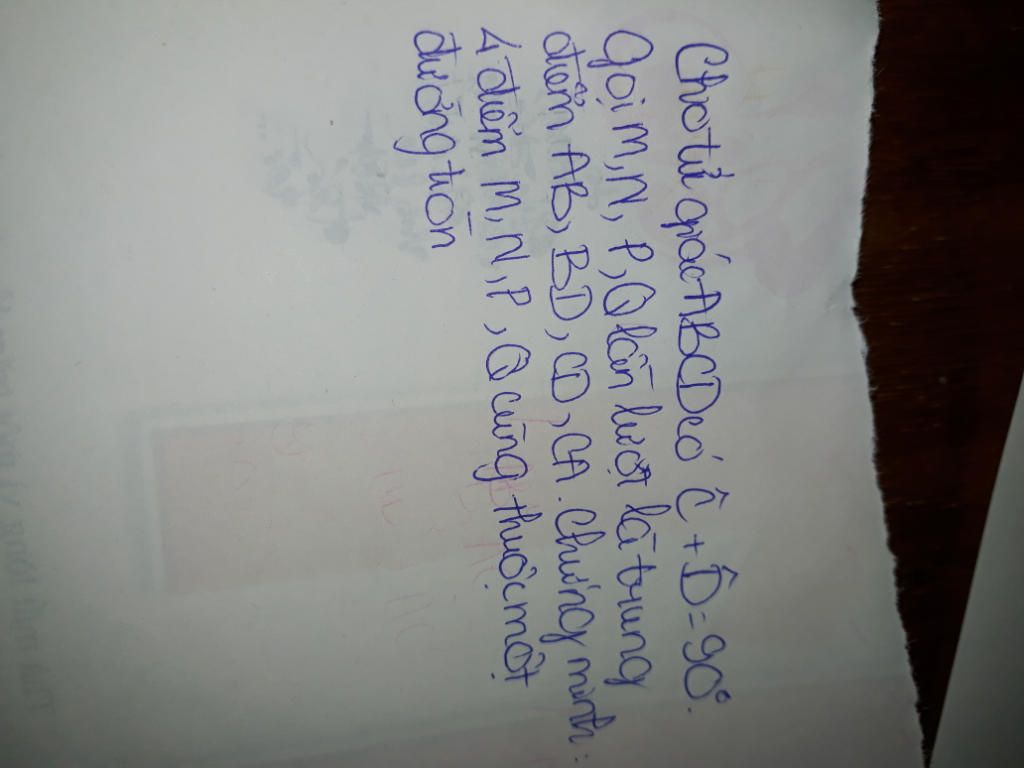 Cho tứ giác ABCD có Ĉ + D̂ = 90°.
Gọi M, N, P, Q lần lượt là trung
điểm AB, BD, CD, CA. Chứng minh:
4 điểm M, N, P, Q cùng thuộc một
đường tròn